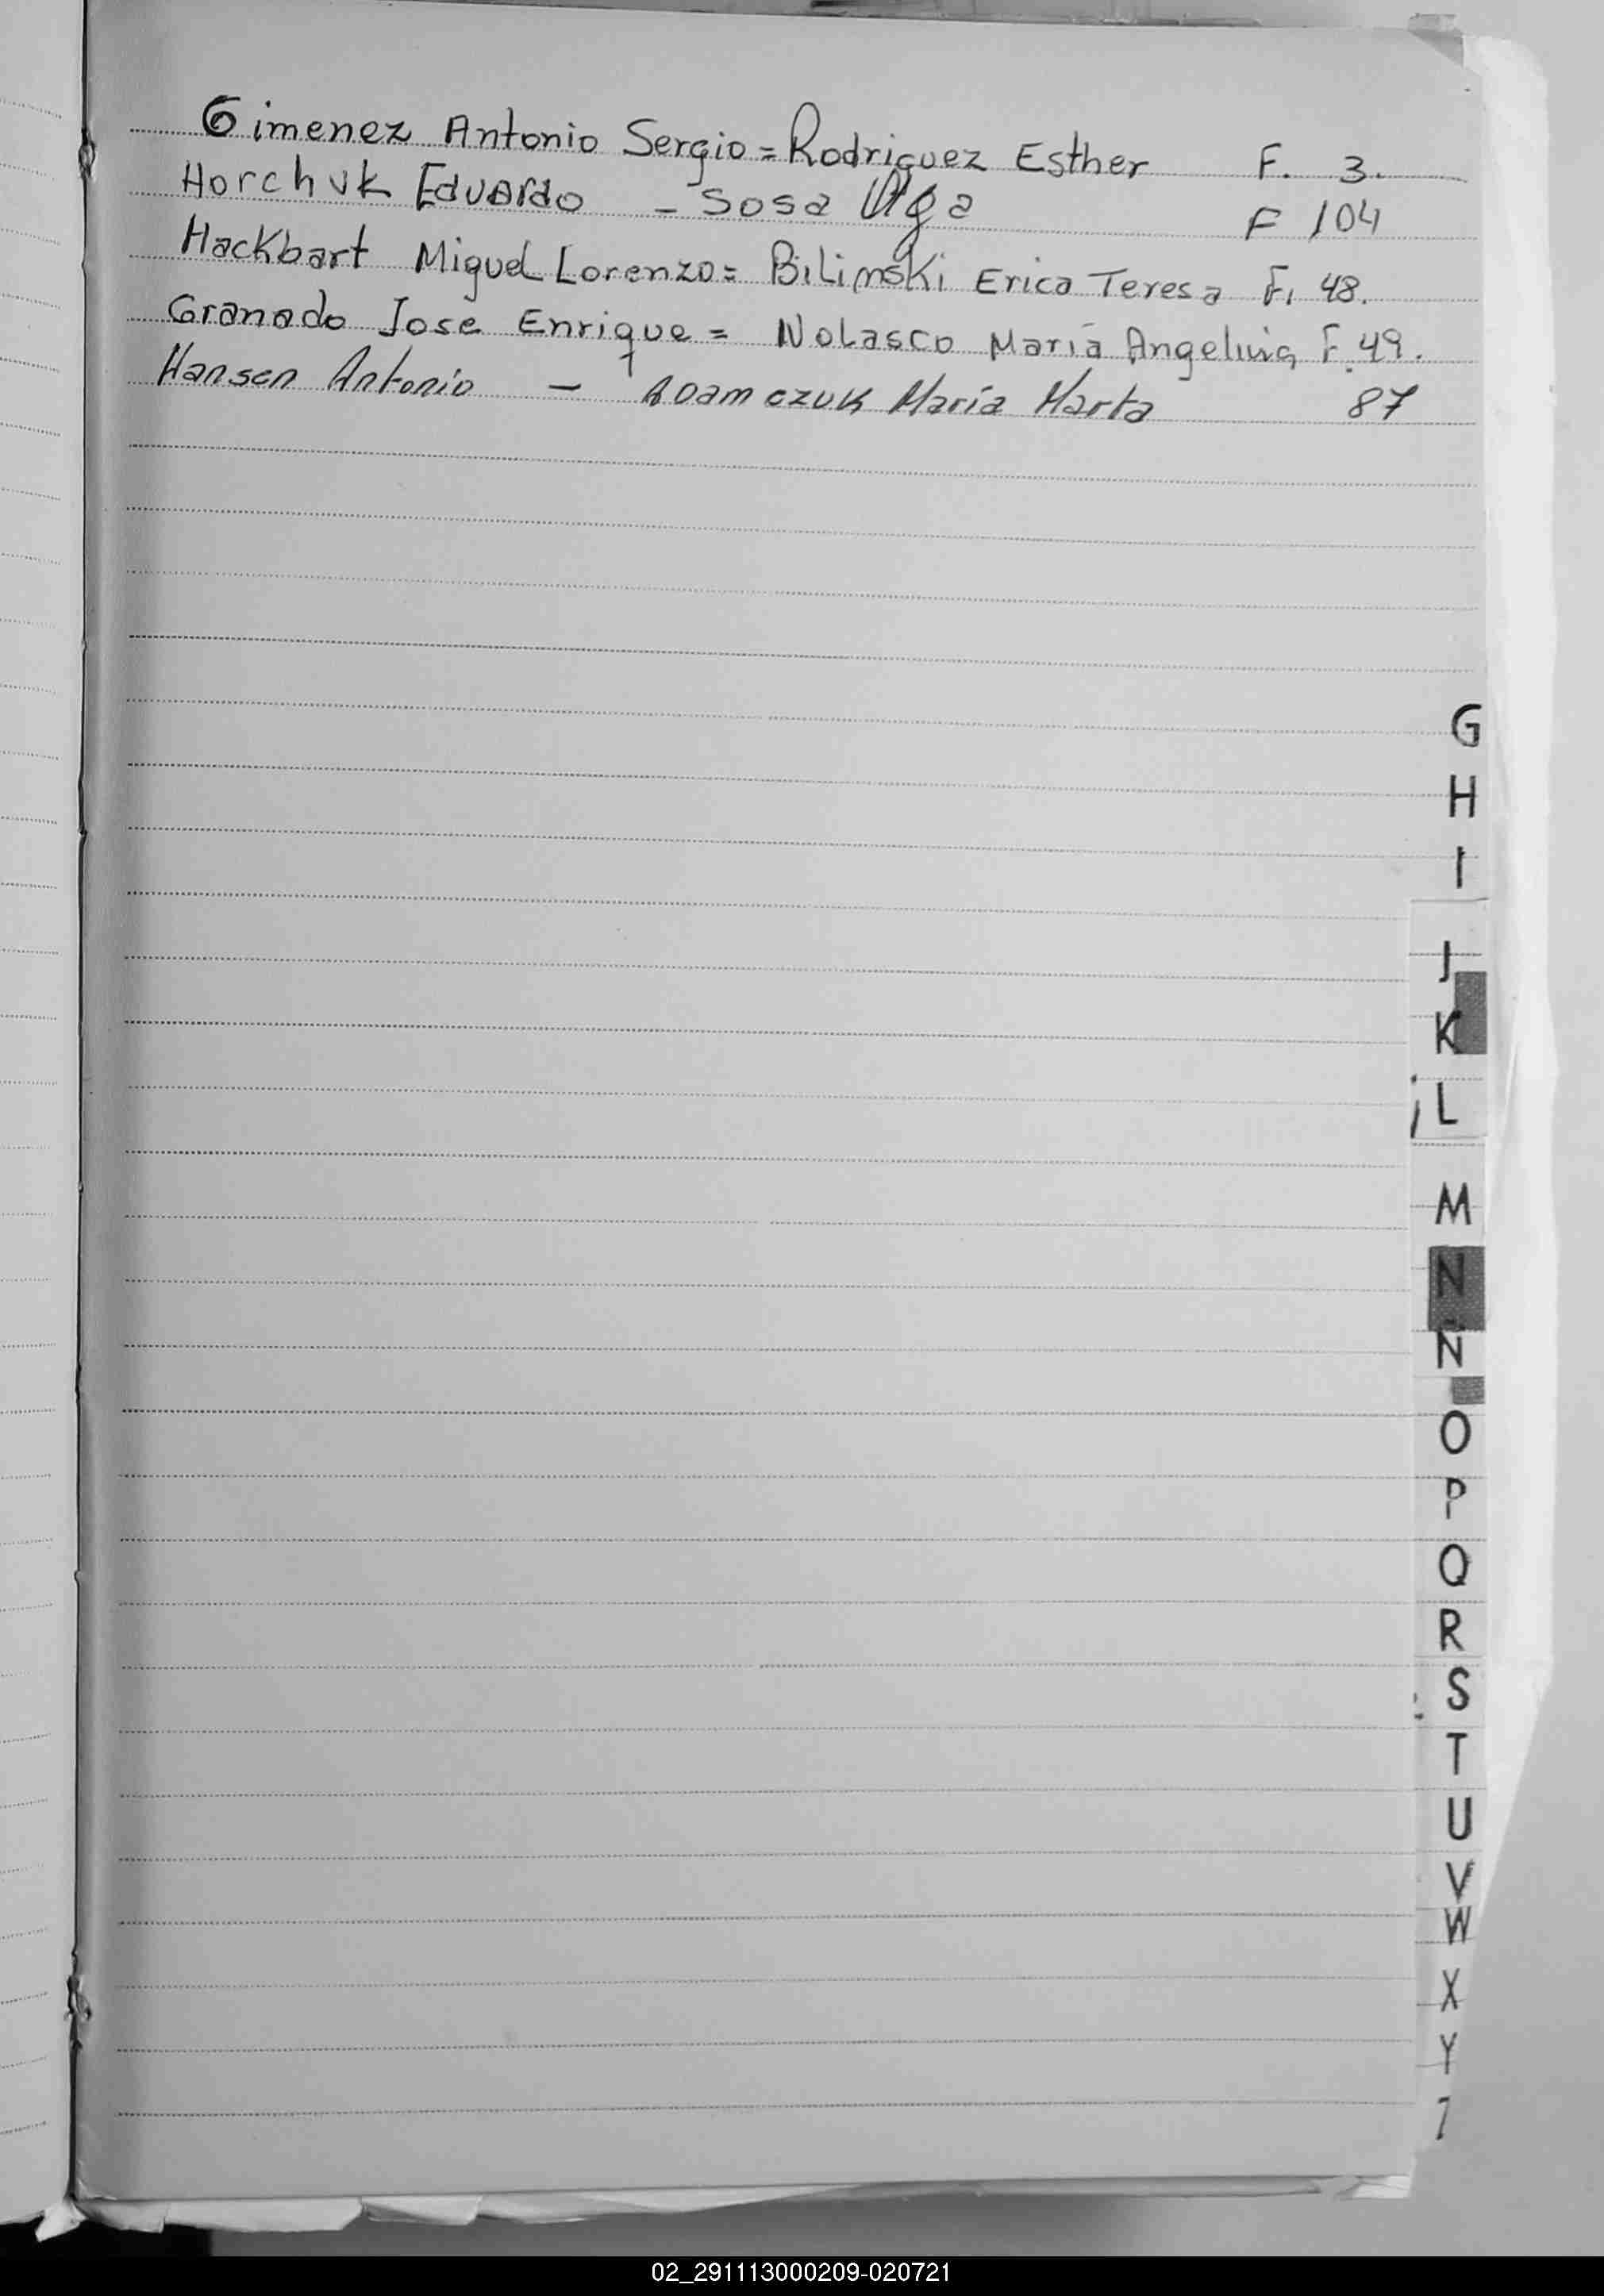 Gimenez Antonio Sergio = Rodriguez Esther F. 3.
Horchuk Eduardo - Sosa Olga F 104
Hackbart Miguel Lorenzo = Bilinski Erica Teresa F. 48.
Granado Jose Enrique = Nolasco Maria Angelina F. 49.
Hansen Antonio - Adamczuk María Marta 87
G
H
I
J
K
L
M
N
Ñ
O
P
Q
R
S
T
U
V
W
X
Y
Z
02_291113000209-020721